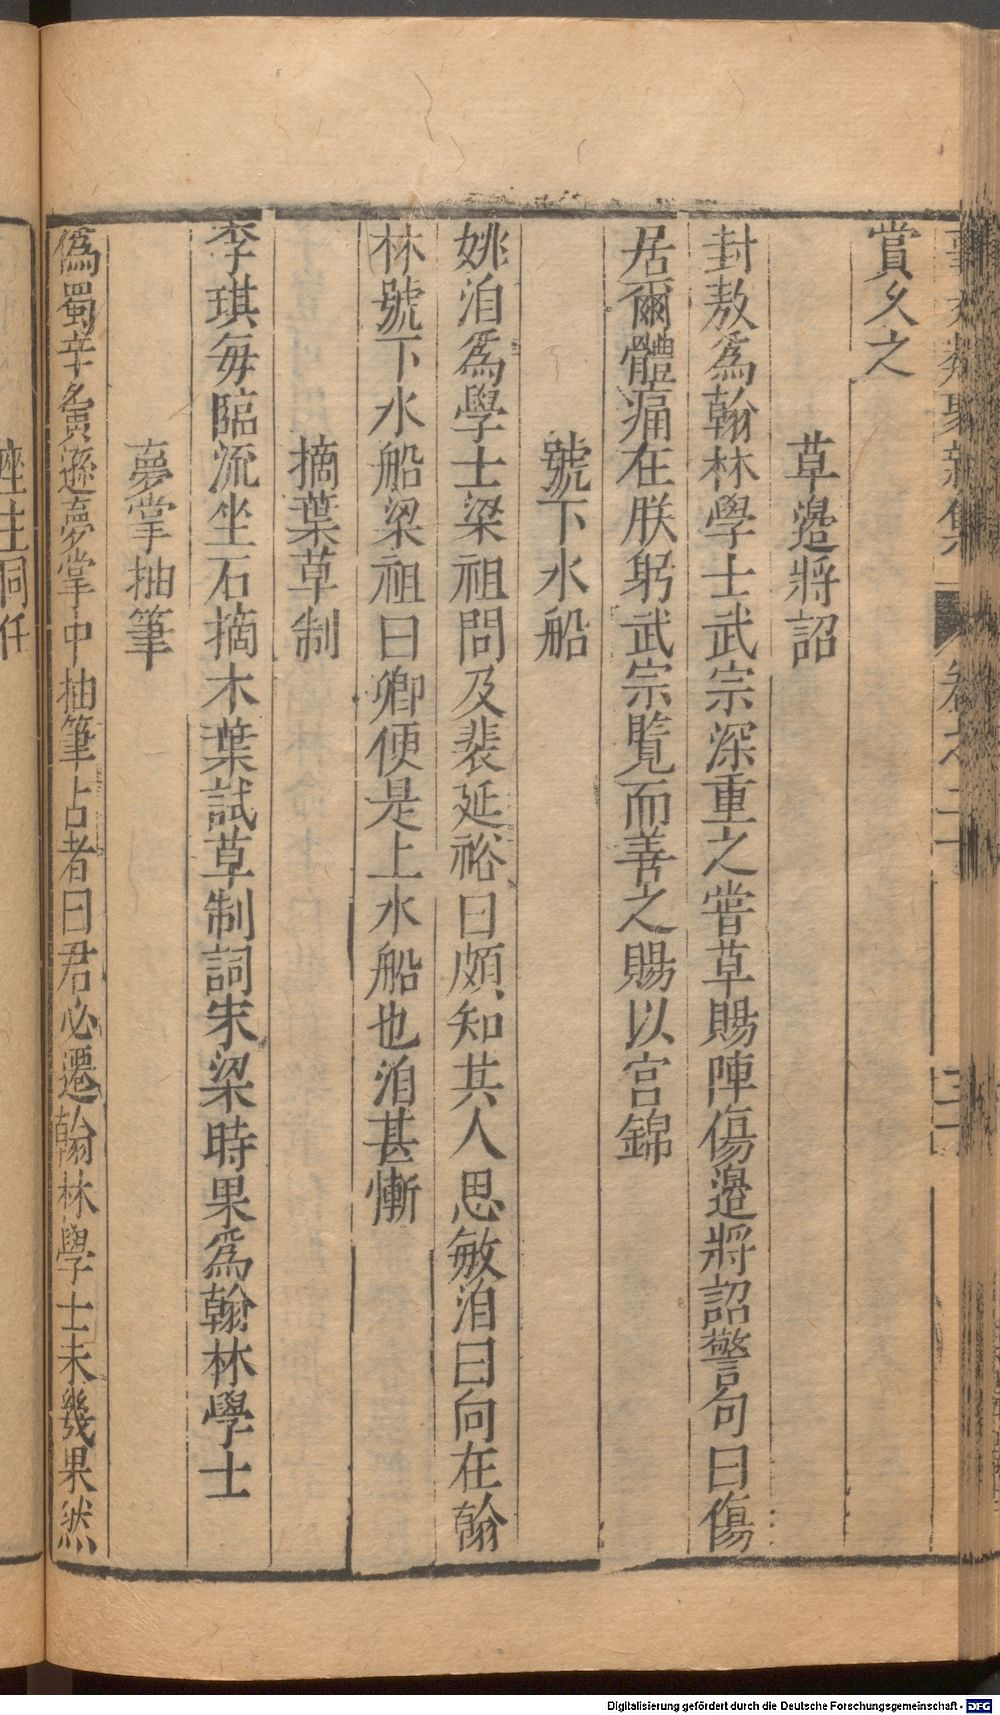 事文類聚新集 卷之二十
賞久之
草邉將詔
封敖爲翰林學士武宗深重之甞草賜陣傷邉將詔警句曰傷
居爾體痛在朕躬武宗覧而善之賜以宫錦
號下水船
姚洎爲學士梁祖問及裴延裕曰頗知其人思敏洎曰向在翰
林號下水船梁祖曰卿便是上水船也洎甚慚
摘葉草制
李琪每臨流坐石摘木葉試草制詞宋梁時果爲翰林學士
夣掌抽筆
僞蜀辛夤遜夣掌中抽筆占者曰君必遷翰林學士未幾果然
Digitalisierung gefördert durch die Deutsche Forschungsgemeinschaft - DFG